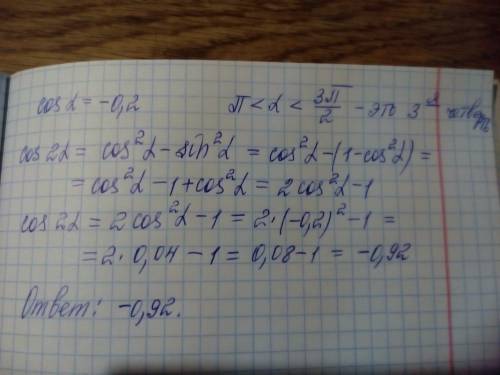 cos α = -0,2    π < α < 3π/2 - это 3я четверть
cos 2α = cos²α - sin²α = cos²α - (1 - cos²α) =
= cos²α - 1 + cos²α = 2cos²α - 1
cos 2α = 2cos²α - 1 = 2·(-0,2)² - 1 =
= 2·0,04 - 1 = 0,08 - 1 = -0,92
Ответ: -0,92.